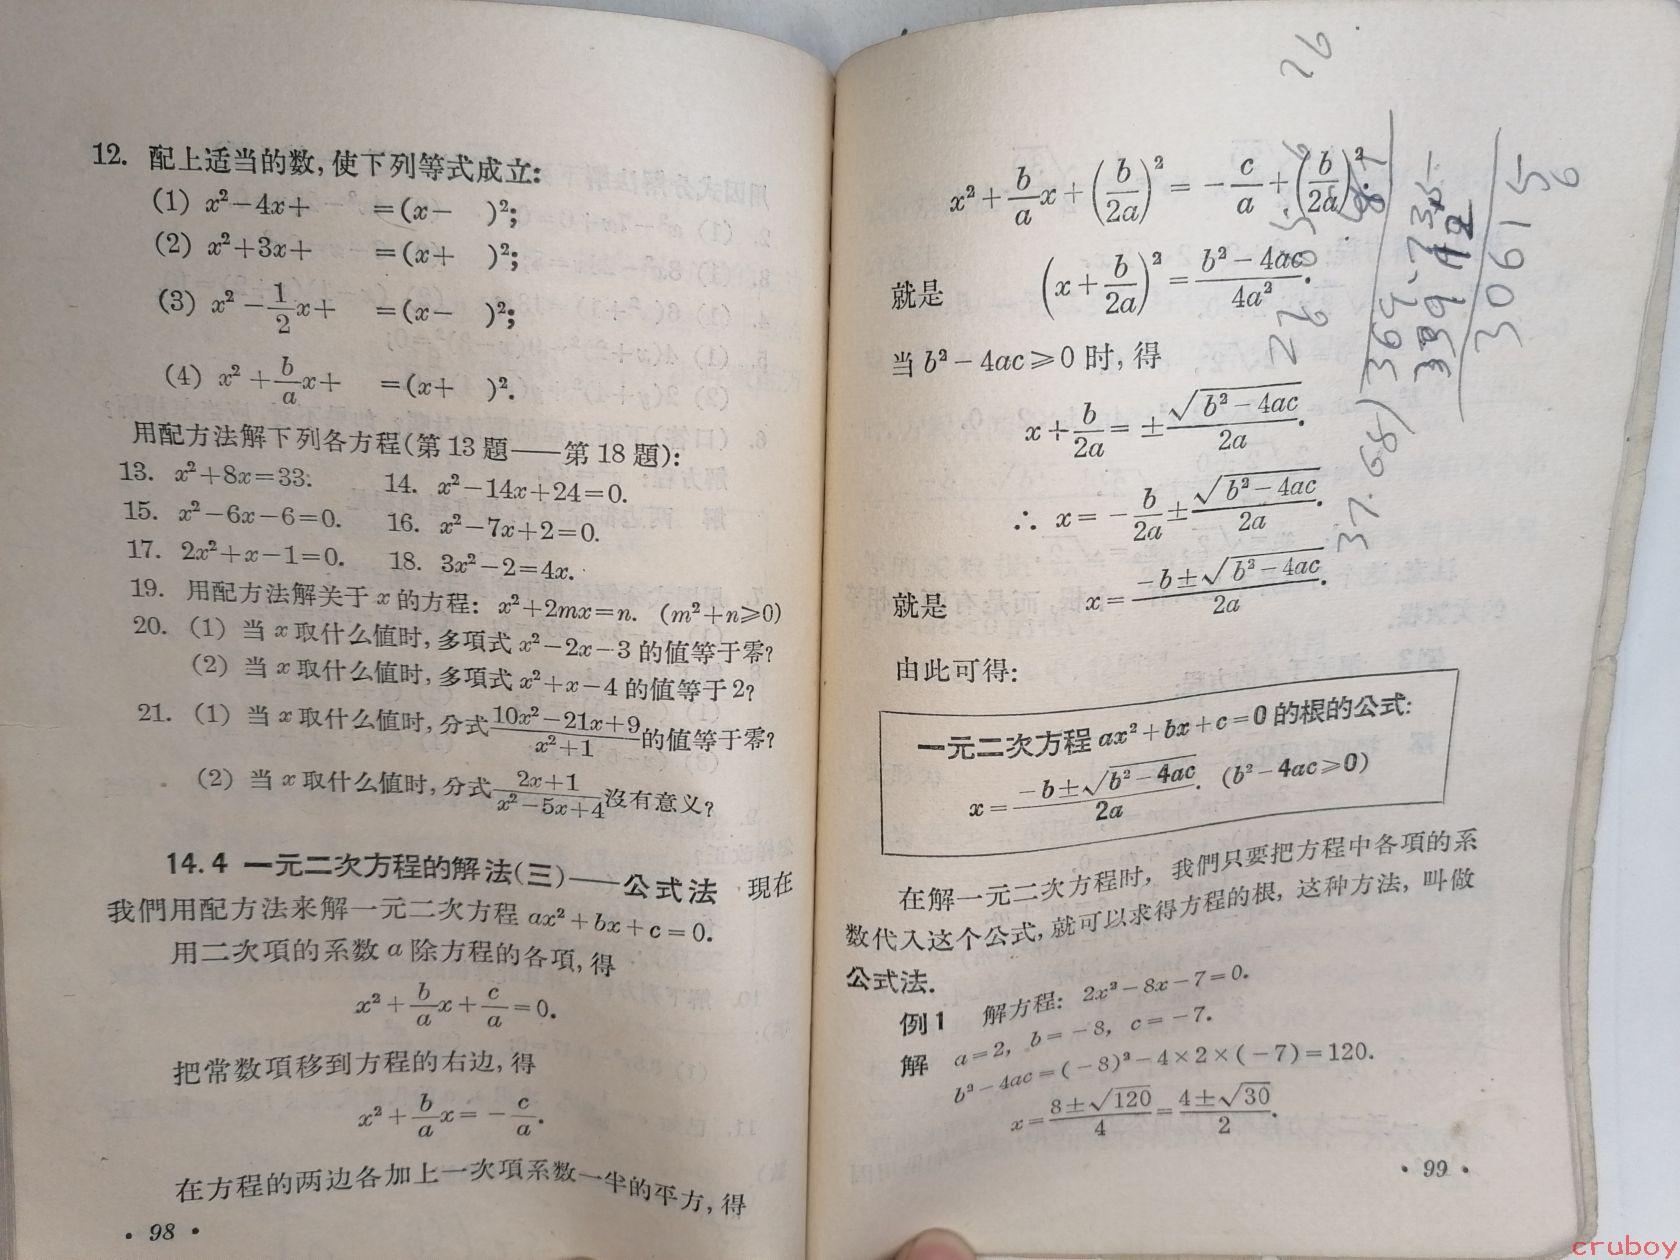 12. 配上适当的数,使下列等式成立:
(1) x²-4x+ =(x- )²;
(2) x²+3x+ =(x+ )²;
(3) x²-1/2x+ =(x- )²;
(4) x²+b/ax+ =(x+ )².
用配方法解下列各方程(第13題——第18題):
13. x²+8x=33. 14. x²-14x+24=0.
15. x²-6x-6=0. 16. x²-7x+2=0.
17. 2x²+x-1=0. 18. 3x²-2=4x.
19. 用配方法解关于x的方程: x²+2mx=n. (m²+n⩾0)
20. (1) 当x取什么值时,多項式x²-2x-3的值等于零?
(2) 当x取什么值时,多項式x²+x-4的值等于2?
21. (1) 当x取什么值时,分式(10x²-21x+9)/(x²+1)的值等于零?
(2) 当x取什么值时,分式(2x+1)/(x²-5x+4)沒有意义?
14.4 一元二次方程的解法(三)——公式法 現在
我們用配方法来解一元二次方程 ax²+bx+c=0.
用二次項的系数a除方程的各項,得
x²+b/ax+c/a=0.
把常数項移到方程的右边,得
x²+b/ax=-c/a.
在方程的两边各加上一次項系数一半的平方,得
· 98 ·
x²+b/ax+(b/2a)²=-c/a+(b/2a)².
就是 (x+b/2a)²=(b²-4ac)/4a².
当b²-4ac⩾0时,得
x+b/2a=±√(b²-4ac)/2a.
∴ x=-b/2a±√(b²-4ac)/2a.
就是 x=(-b±√(b²-4ac))/2a.
由此可得:
一元二次方程ax²+bx+c=0的根的公式:
x=(-b±√(b²-4ac))/2a. (b²-4ac⩾0)
在解一元二次方程时, 我們只要把方程中各項的系
数代入这个公式,就可以求得方程的根, 这种方法, 叫做
公式法.
例1 解方程: 2x²-8x-7=0.
解 a=2, b=-8, c=-7.
b²-4ac=(-8)²-4×2×(-7)=120.
x=(8±√120)/4=(4±√30)/2.
· 99 ·
26
37.68
30615
6
cruboy